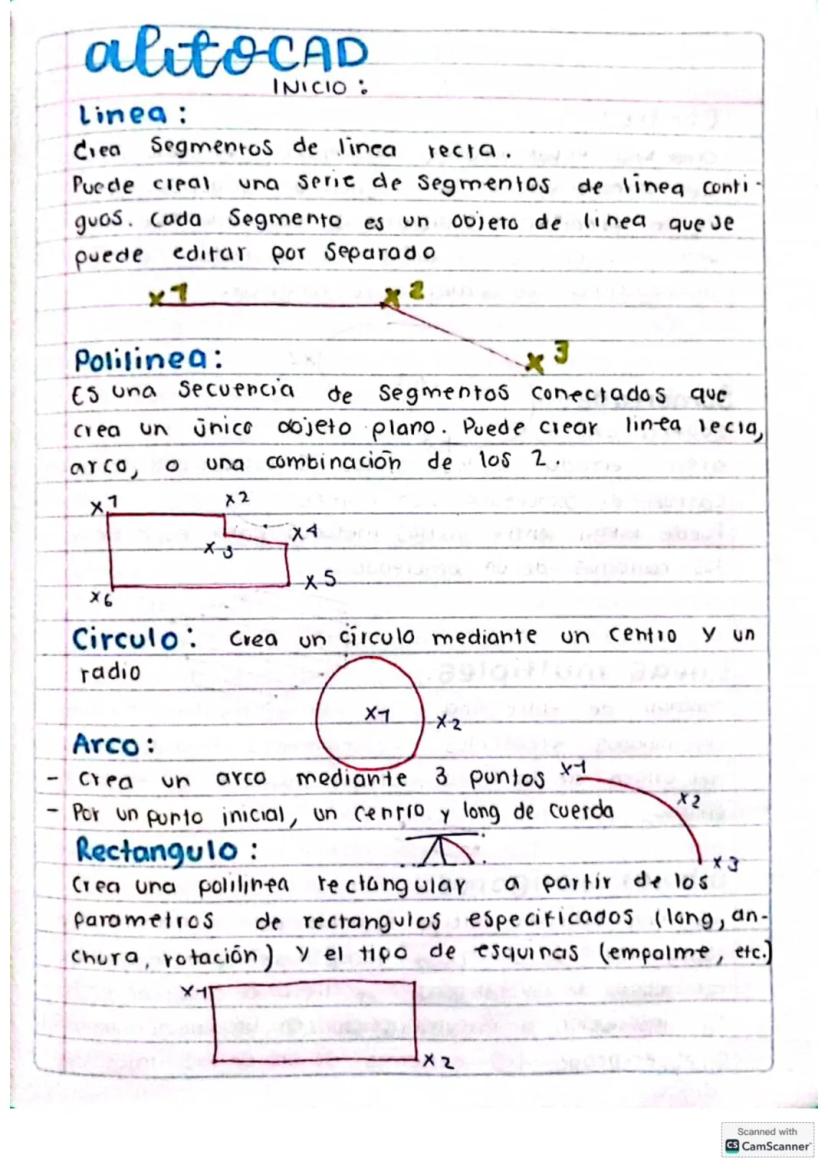 autoCAD
INICIO:
Linea:
Crea Segmentos de linea recta.
Puede crear una serie de segmentos de linea conti-
guos. Cada Segmento es un objeto de linea que se
puede editar por Separado
x1 x2
x3
Polilinea:
Es una secuencia de segmentos conectados que
crea un único objeto plano. Puede crear linea recta,
arco, o una combinación de los 2.
x1 x2
x3 x4
x5
x6
Circulo: Crea un círculo mediante un centro y un
radio
x1 x2
Arco:
- Crea un arco mediante 3 puntos x1
x2
- Por un punto inicial, un centro y long de cuerda
x3
Rectangulo:
Crea una polilinea rectangular a partir de los
parametros de rectangulos especificados (long, an-
chura, rotación) y el tipo de esquinas (empalme, etc.)
x1
x2
Scanned with
CS CamScanner